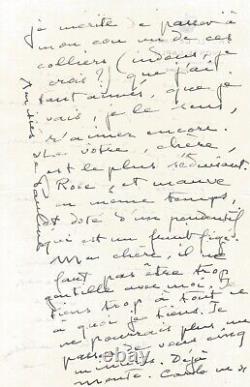 je mérite de passer à
mon cou un de ces
colliers (indous, je
crois?) que j'ai
tant aimés, que je
vais, je le sens,
r'aimer encore.
Le vôtre, chère,
est le plus séduisant.
Rose et mauve
en même temps,
et doté d'un pendentif
qui est un
Ma chère, il ne
faut pas être trop
gentille avec moi. Je
tiens trop à tout ce
à quoi je tiens. Je
ne pourrais plus me
passer de vous cinq
minutes. Déjà
Monte-Carlo